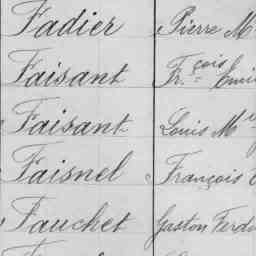 Fadier Pierre M
Faisant Fr.çois Emi
Faisant Louis M
Faisnel François
Fauchet Gaston Ferd